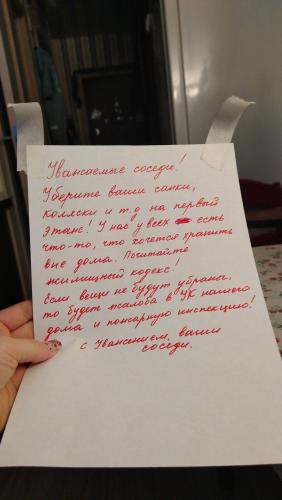 Уважаемые соседи!
Уберите ваши санки,
коляски и т.д на первый
этаж! У нас у всех есть
что-то, что хочется хранить
вне дома. Почитайте
жилищный кодекс!
Если вещи не будут убраны,
то будет жалоба в УК нашего
дома и пожарную инспекцию!
с Уважением, ваши
соседи.